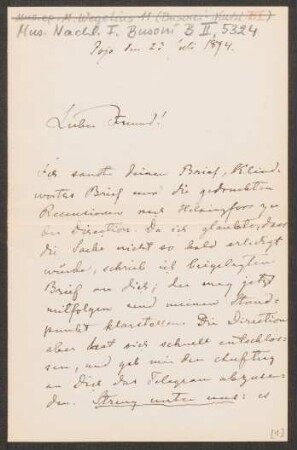 Mus. ep. M. Wegelius 11 (Busoni-Nachl. B II)
Mus. Nachl. F. Busoni B II, 5324
Pojo den 23 Juli 1894.
Lieber Freund!
Ich sandte deinen Brief, Klind-
worths Brief und die gedruckten
Recensionen nach Helsingfors zu
der Direction. Da ich glaubte, dass
die Sache nicht so bald erledigt
würde, schrieb ich beigelegten
Brief an dich; der mag jetzt
mitfolgen und meinen Stand-
punkt klarstellen. Die Direction
aber hat sich schnell entschlos-
sen, und gab mir den Auftrag
an Dich das Telegram abzusen-
den. Streng unter uns: es
[1]